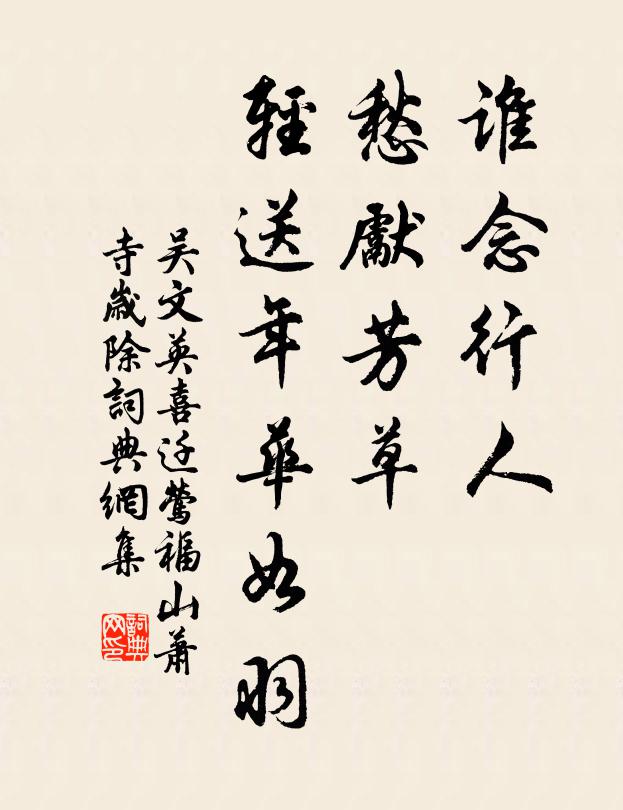 誰念行人
愁獻芳草
輕送年華如羽
吴文英喜迁鶯福山萧
寺歲除詞典網集
詞典
网印